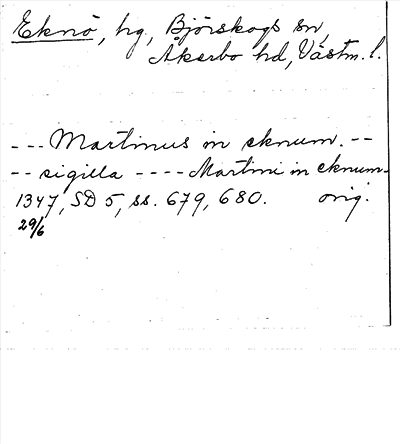 Eknö, hg, Björskogs sn,
Åkerbo hd, Västm. l.
--- Martinus in eknum. --
-- sigilla ---- Martini in eknum.
1347, SD 5, ss. 679, 680. orig.
29/6